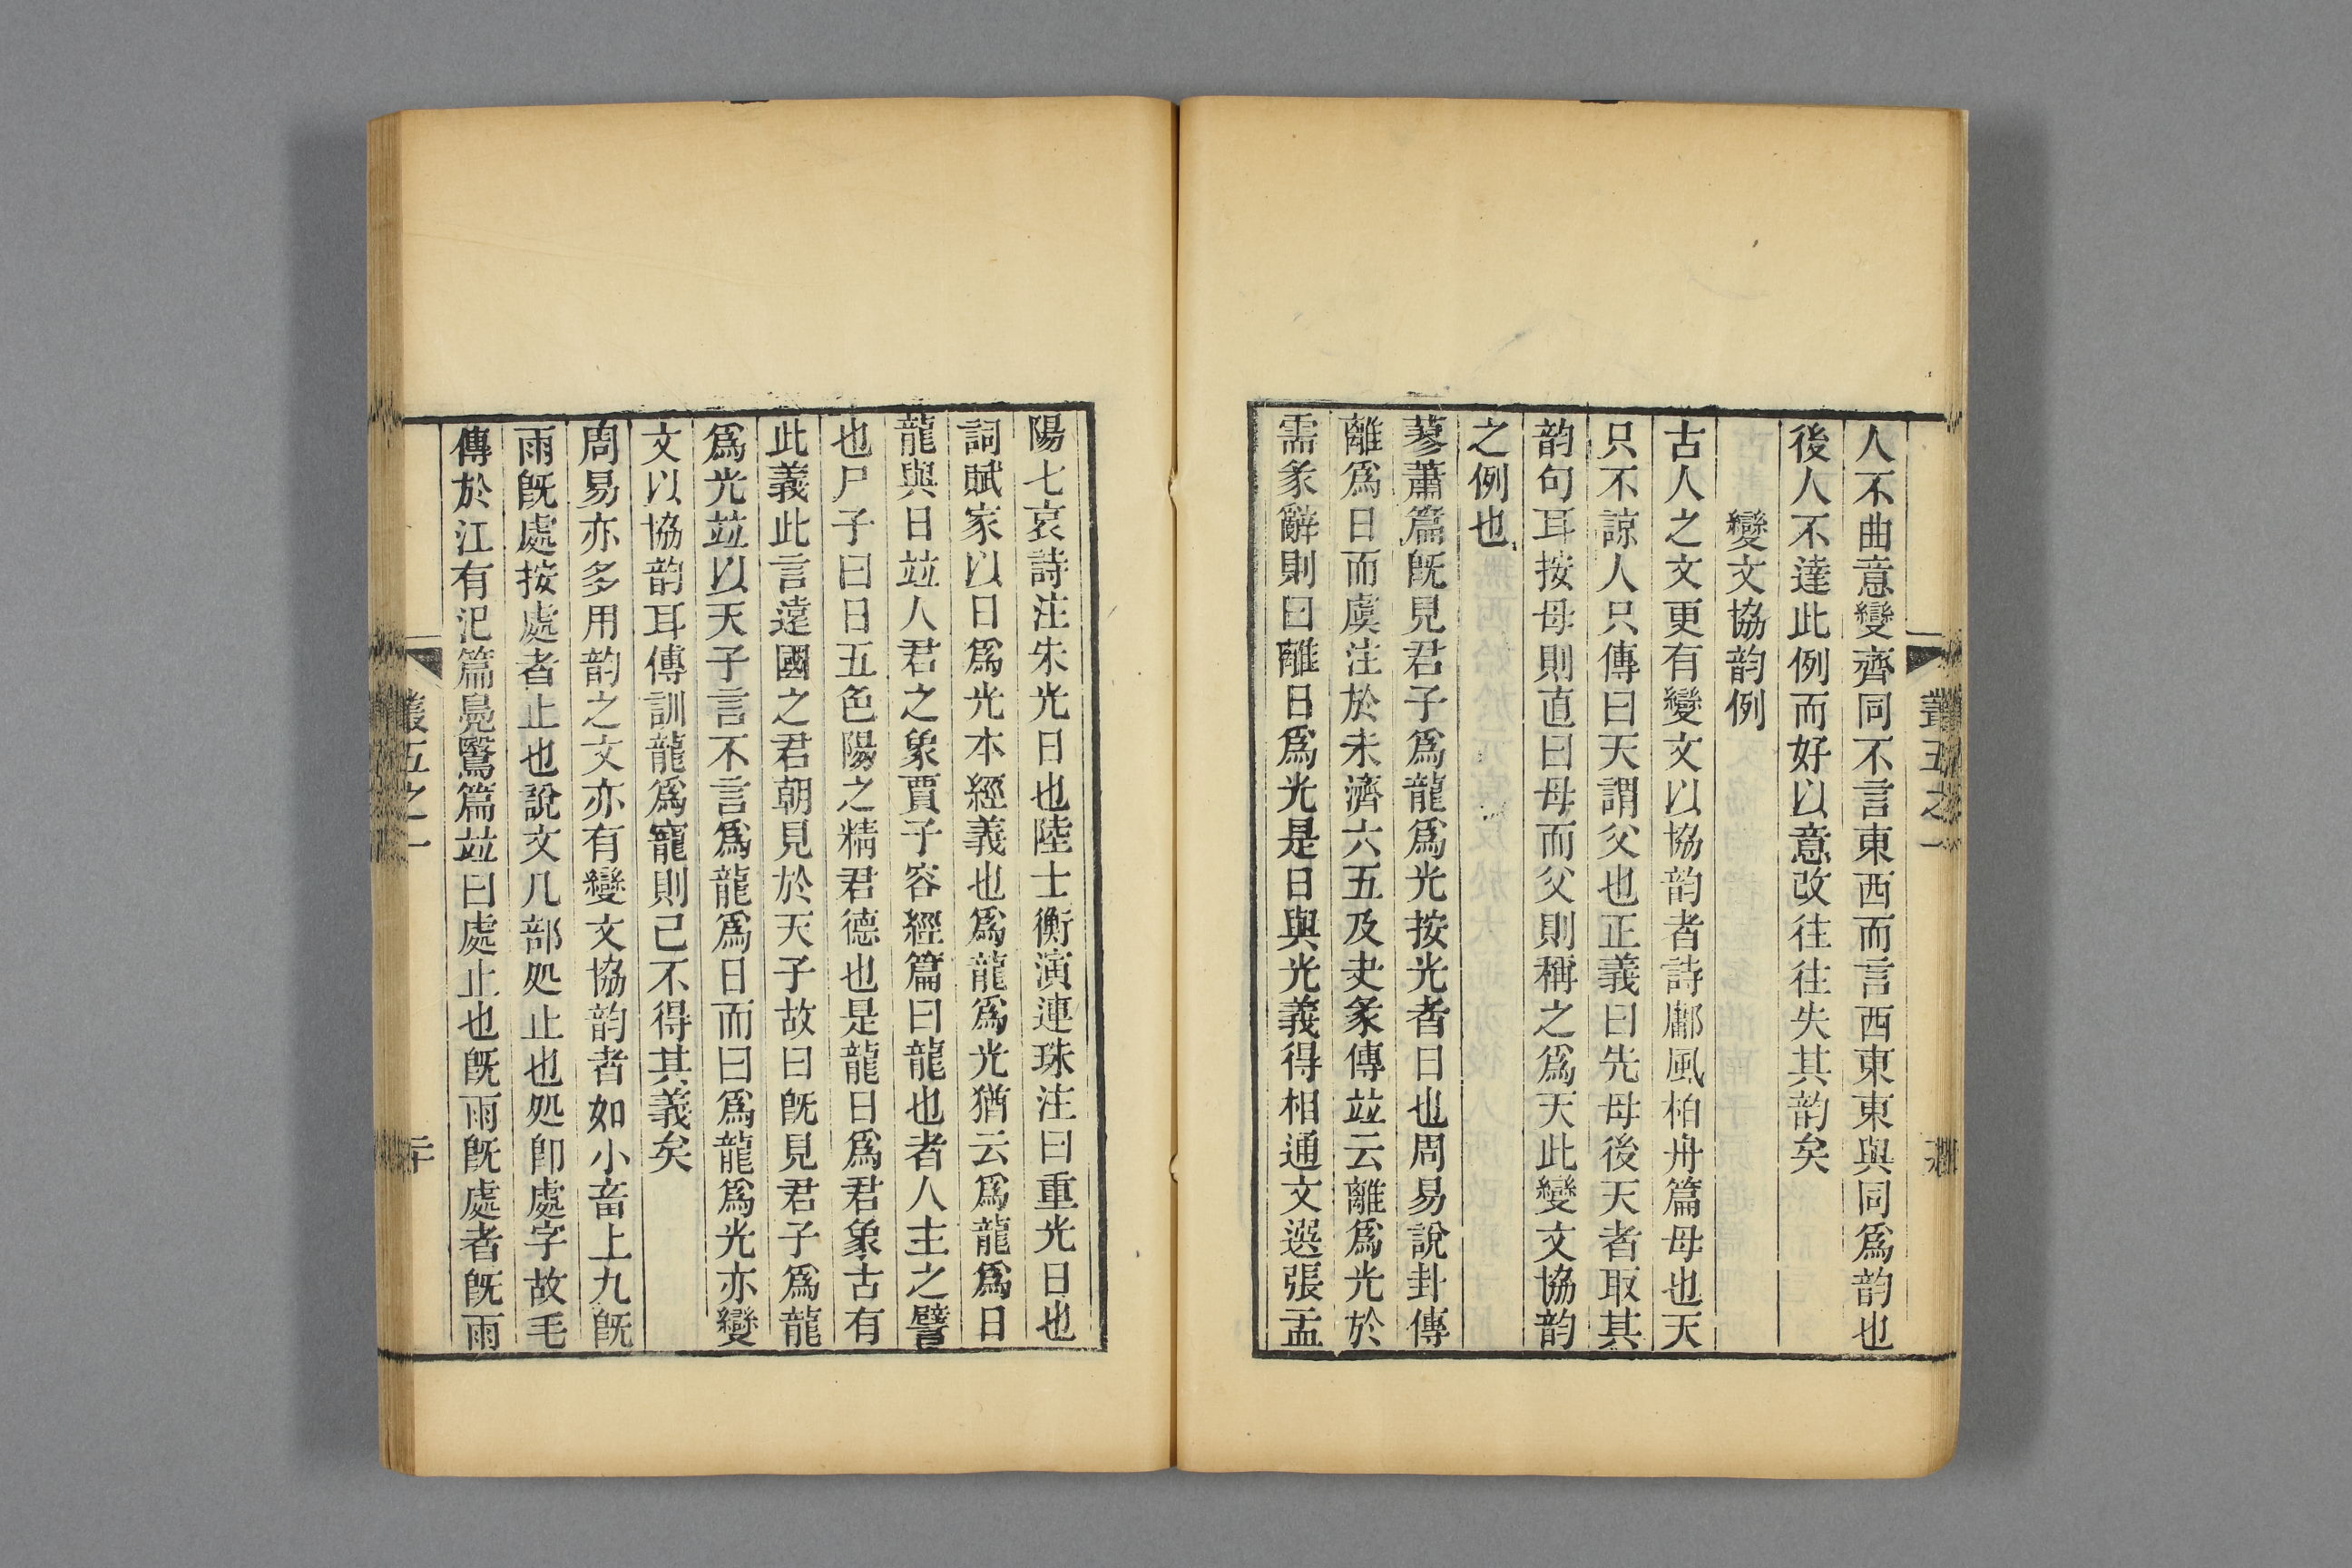 人不曲意變齊同不言東西而言西東東與同爲韵也
後人不達此例而好以意改往往失其韵矣
變文協韵例
古人之文更有變文以協韵者詩鄘風柏舟篇母也天
只不諒人只傳曰天謂父也正義曰先母後天者取其
韵句耳按母則直曰母而父則稱之爲天此變文協韵
之例也
蓼蕭篇旣見君子爲龍爲光按光者日也周易說卦傳
離爲日而虞注於未濟六五及夬彖傳竝云離爲光於
需彖辭則曰離日爲光是日與光義得相通文選張孟
陽七哀詩注朱光日也陸士衡演連珠注曰重光日也
詞賦家以日爲光本經義也爲龍爲光猶云爲龍爲日
龍與日竝人君之象賈子容經篇曰龍也者人主之譬
也尸子曰日五色陽之精君德也是龍日爲君象古有
此義此言遠國之君朝見於天子故曰旣見君子爲龍
爲光竝以天子言不言爲龍爲日而曰爲龍爲光亦變
文以協韵耳傳訓龍爲寵則已不得其義矣
周易亦多用韵之文亦有變文協韵者如小畜上九旣
雨旣處按處者止也說文几部処止也処卽處字故毛
傳於江有汜篇鳧鷖篇竝曰處止也旣雨旣處者旣雨
叢五之一
叢五之一
二十